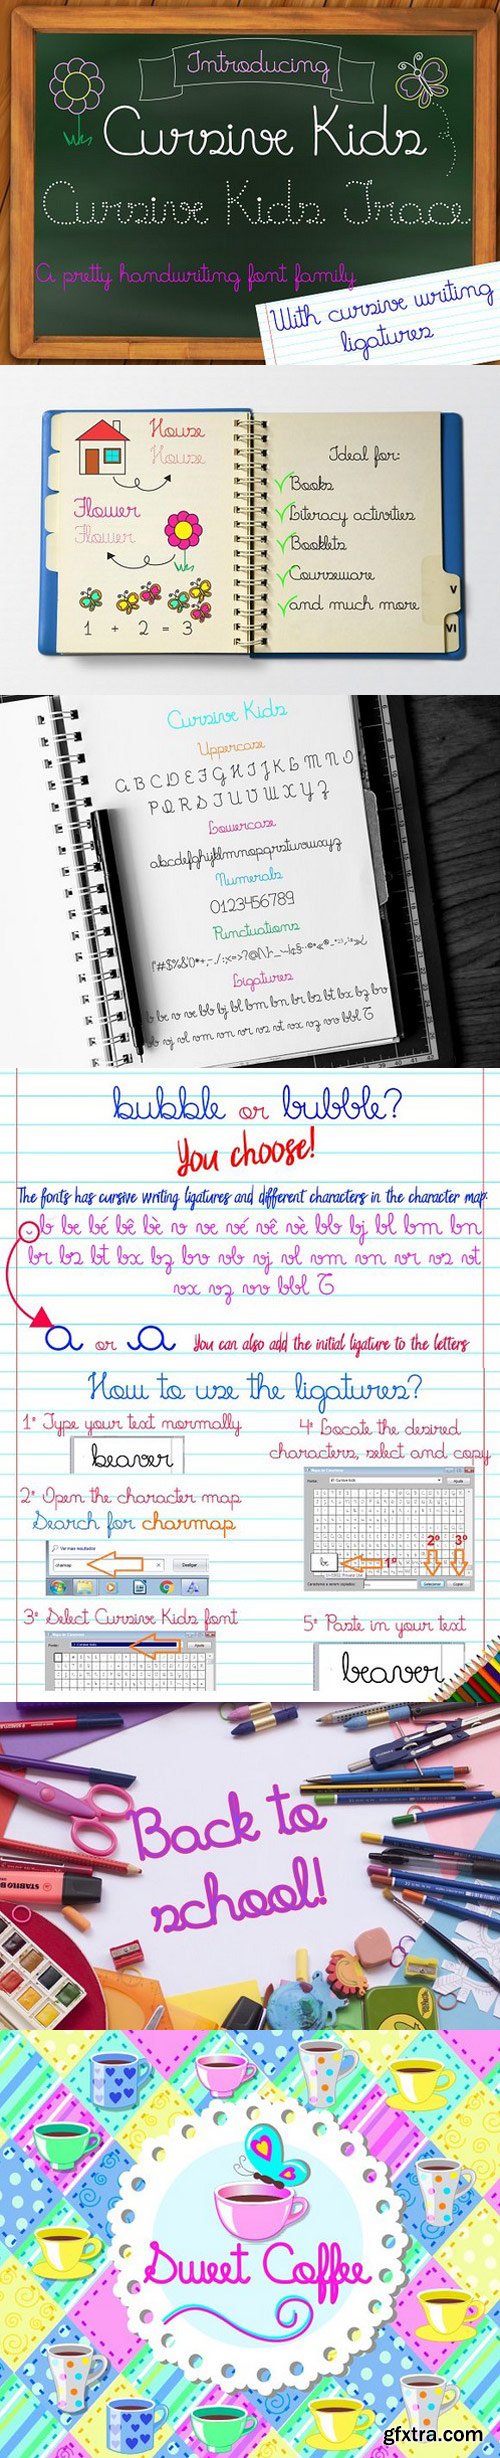 Introducing
Cursive Kids
Cursive Kids Trace
A pretty handwriting font family
With cursive writing
ligatures
House
House
Flower
Flower
1 + 2 = 3
Ideal for:
Books
Literacy activities
Booklets
Courseware
and much more
V
VI
Cursive Kids
Uppercase
A B C D E F G H I J K L M N O
P Q R S T U V W X Y Z
Lowercase
abcdefghijklmnopqrstuvwxyz
Numerals
0123456789
Punctuations
Ligatures
bubble or bubble?
You choose!
The fonts has cursive writing ligatures and different characters in the character map:
b be bé bê bè v ve vé vê vè bb bj bl bm bn
br bs bt bx bz bv vb vj vl vm vn vr vs vt
vx vz vv bbl
a or a You can also add the initial ligature to the letters
How to use the ligatures?
1º Type your text normally
beaver
2º Open the character map
Search for charmap
Ver mais resultados
charmap
Desligar
3º Select Cursive Kids font
Cursive kids
Ajuda
4º Locate the desired
characters, select and copy
Ajuda
be
1º
2º
3º
Selecionar
Copiar
5º Paste in your text
beaver
Back to
school!
STABILO BOSS
Sweet Coffee
gfxtra.com